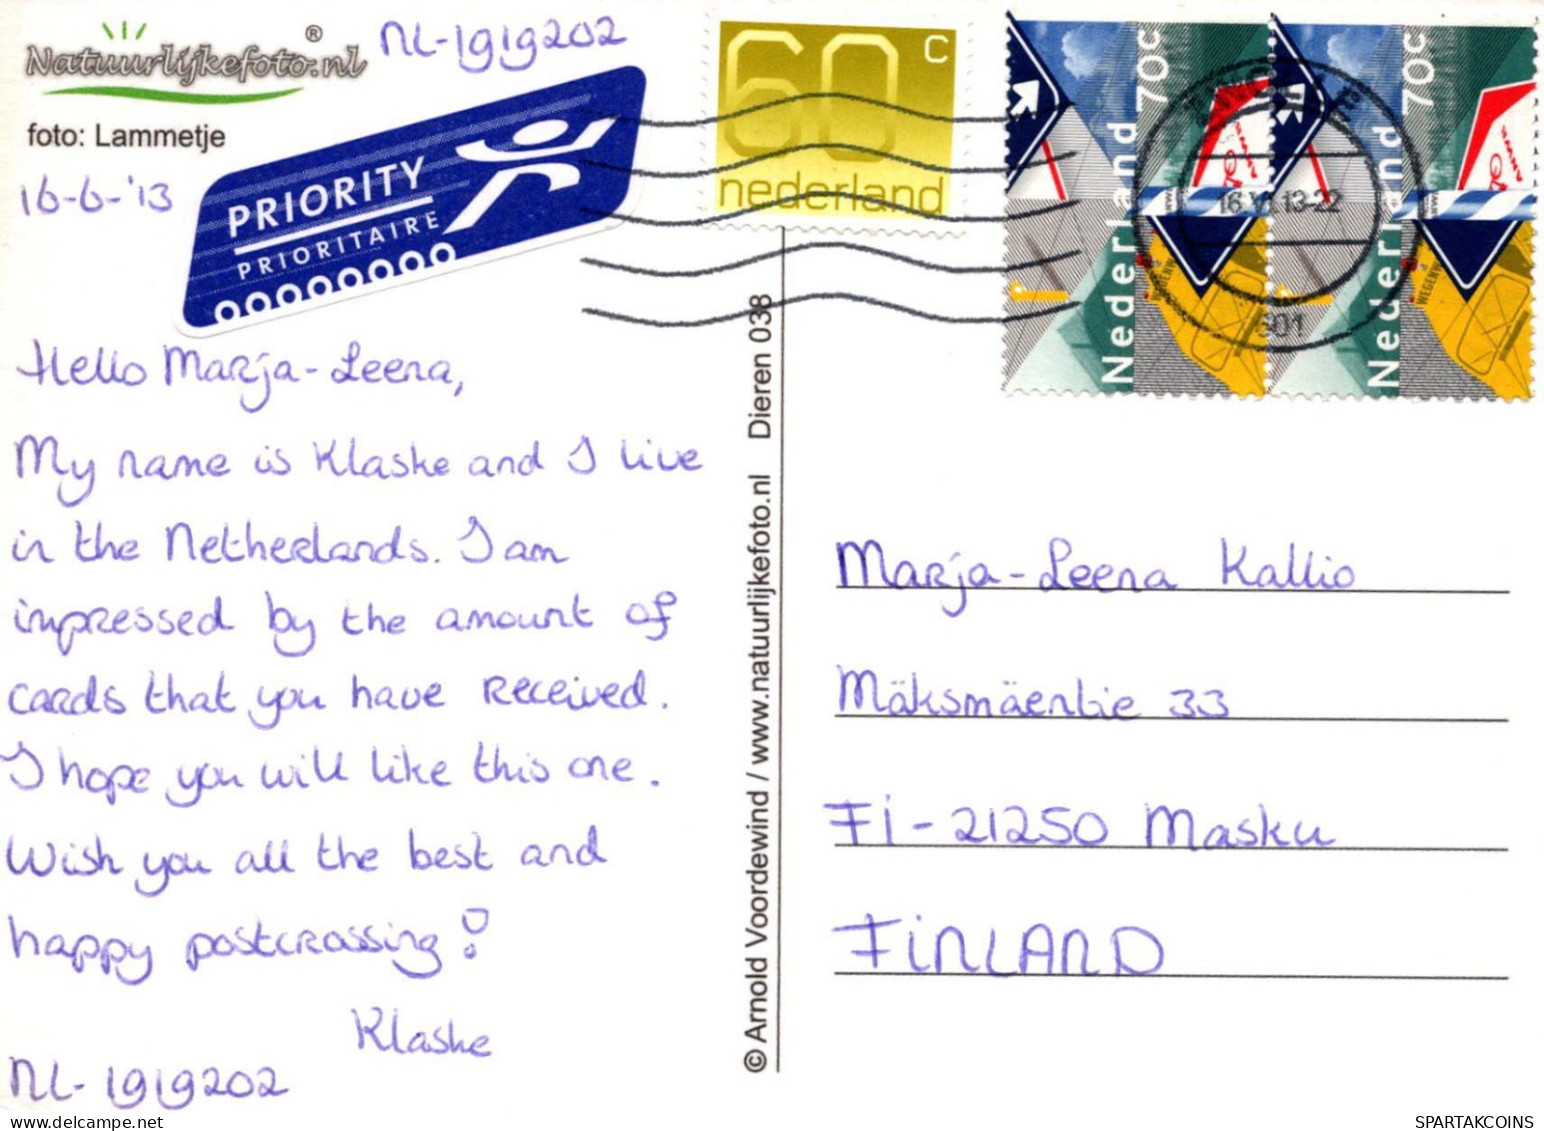 Natuurlijkefoto.nl®
NL-1919202
foto: Lammetje
16-6-'13
PRIORITY
PRIORITAIRE
60 c
nederland
70c
Nederland
70c
Nederland
16.VI.13-22
Hello Marja-Leena,
My name is Klaske and I live
in the Netherlands. I am
impressed by the amount of
cards that you have received.
I hope you will like this one.
Wish you all the best and
happy postcrossing!
Klaske
NL-1919202
© Arnold Voordewind / www.natuurlijkefoto.nl Dieren 038
Marja-Leena Kallio
Mäksmäentie 33
Fi-21250 Masku
FINLAND
SPARTAKCOINS